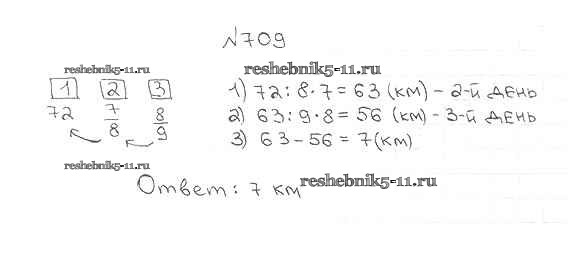 №709
reshebnik5-11.ru reshebnik5-11.ru
1 2 3
72 7/8 8/9
1) 72 : 8 · 7 = 63 (км) - 2-й день
2) 63 : 9 · 8 = 56 (км) - 3-й день
3) 63 - 56 = 7 (км)
reshebnik5-11.ru
Ответ: 7 км reshebnik5-11.ru